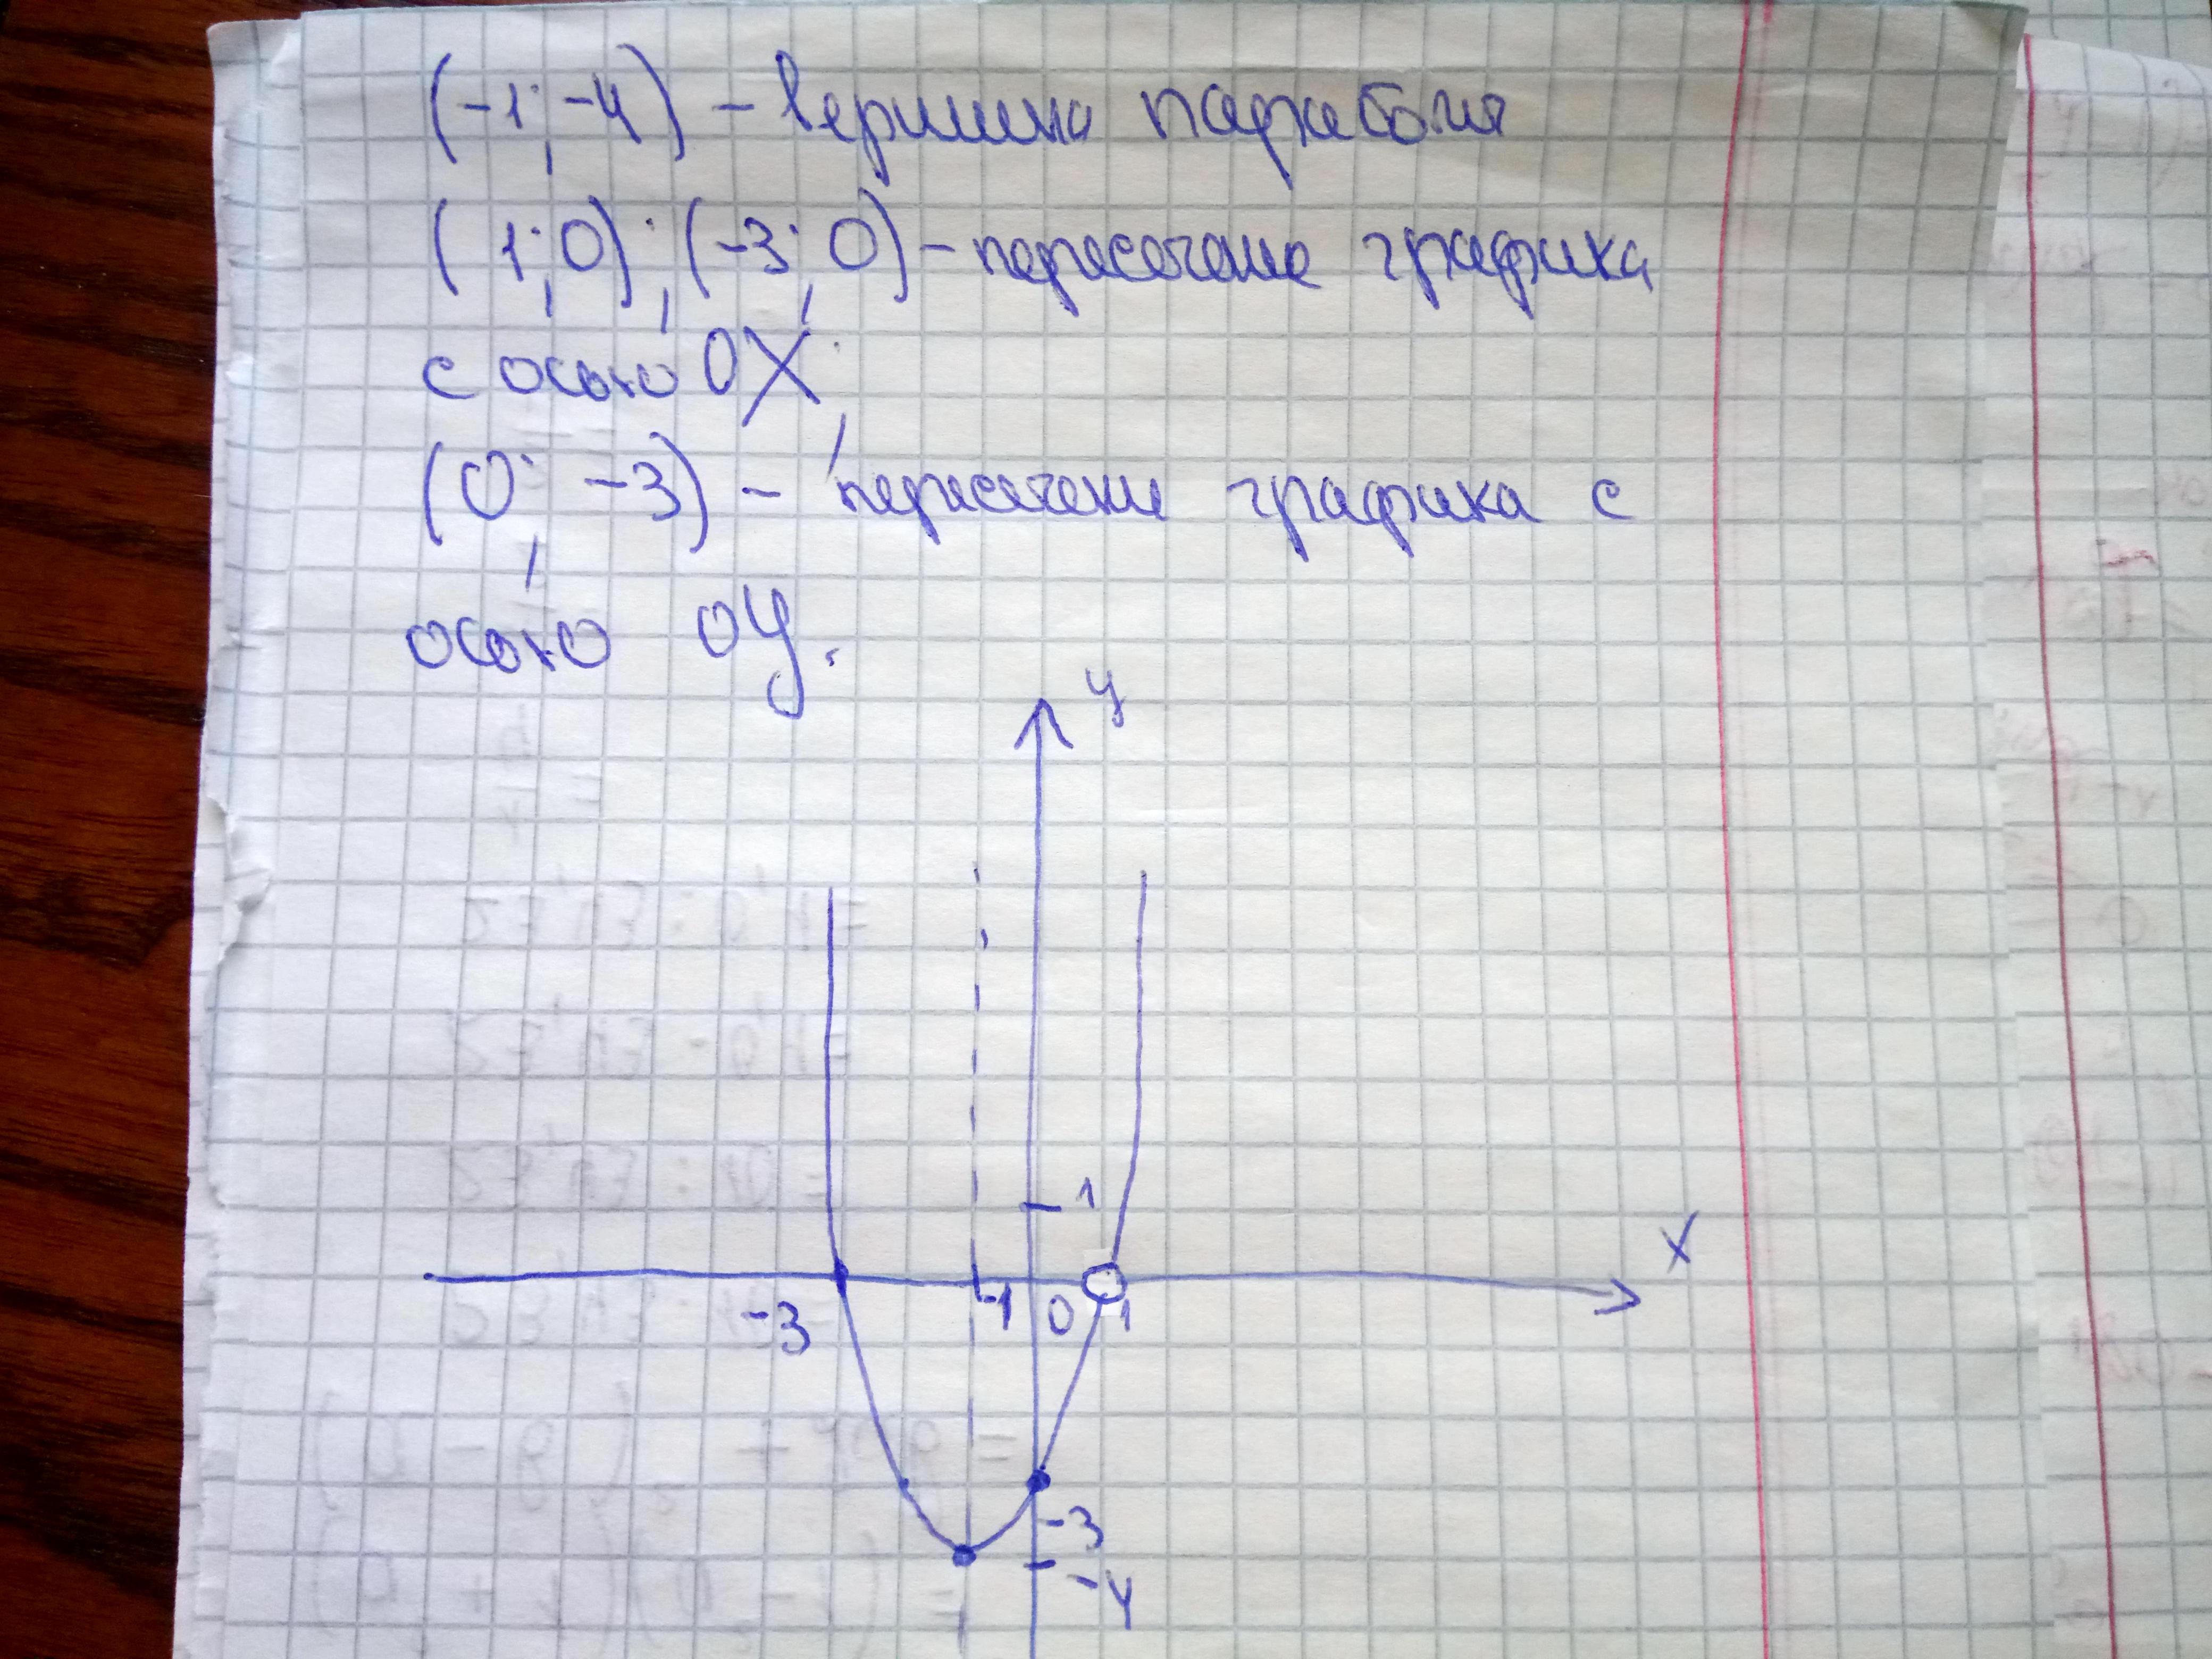 (-1; -4) - вершина параболы
(1; 0); (-3; 0) - пересечение графика
с осью OX;
(0; -3) - пересечение графика с
осью OY.
y
1
x
-3 -1 0 1
-3
-4